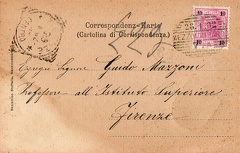 Correspondenz-Karte
(Cartolina di Corrispondenza.)
Egregio Signore Guido Mazzoni
Professore all' Istituto Superiore
Firenze